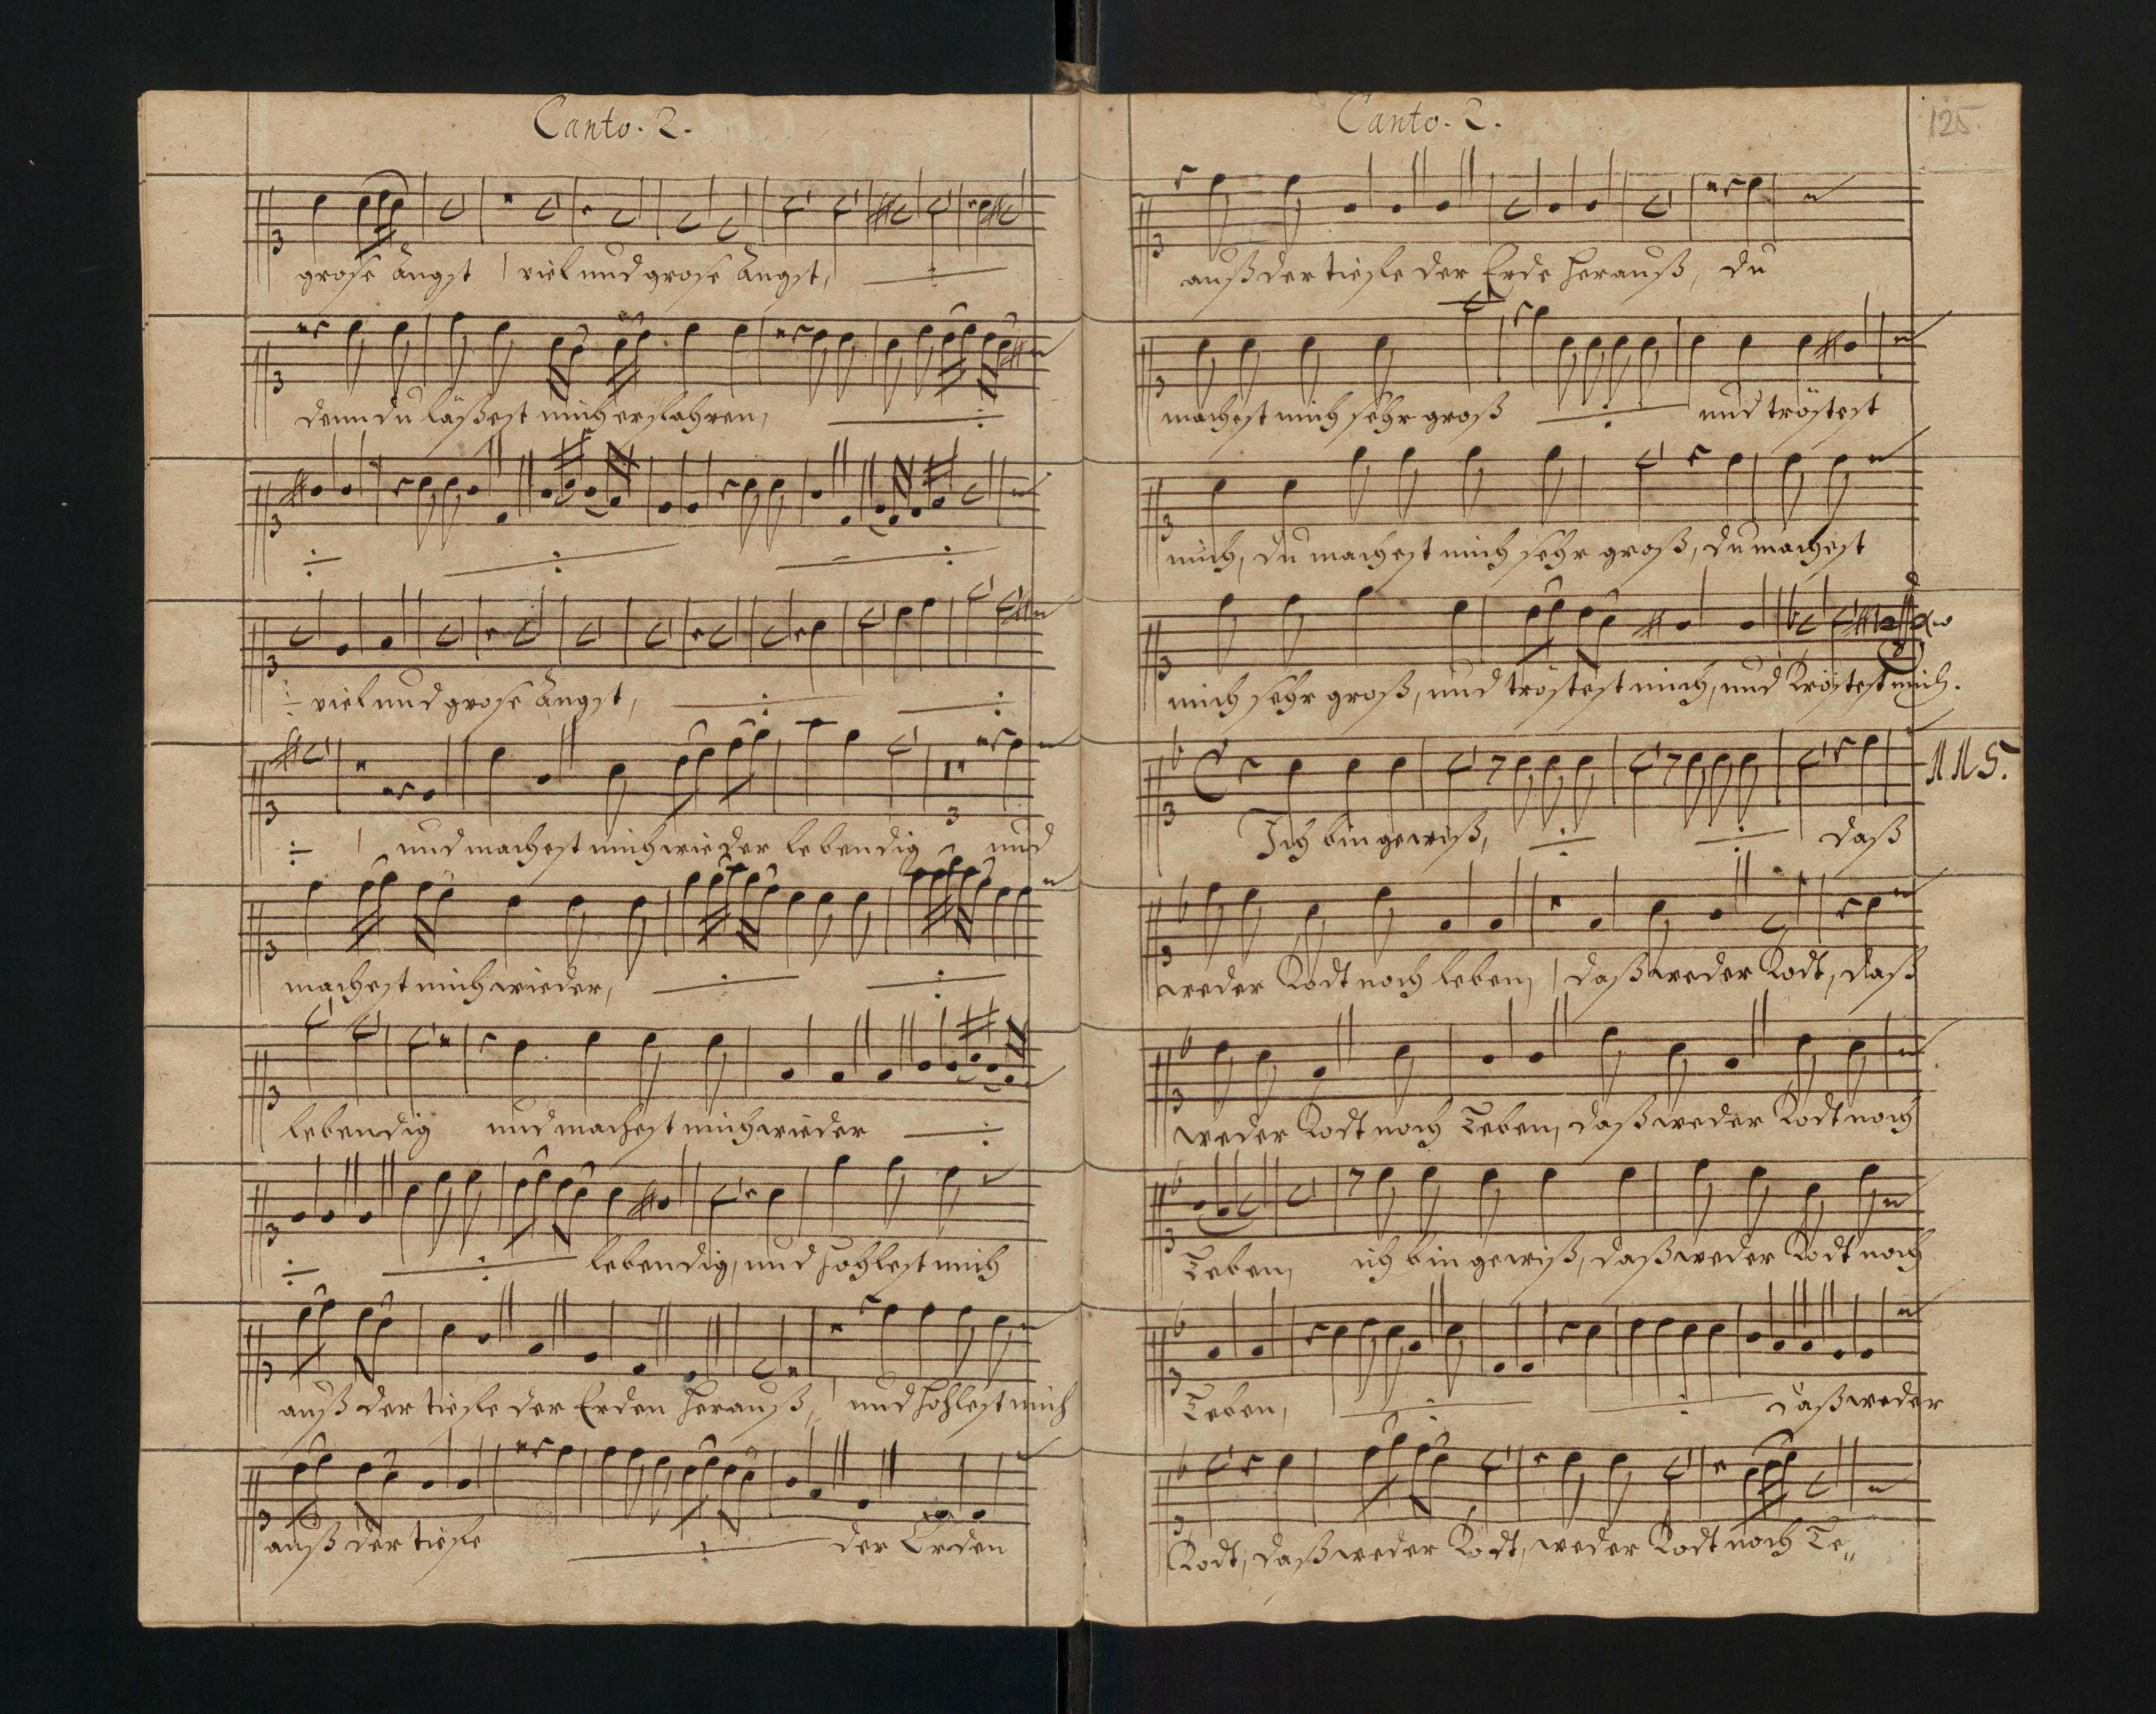 Canto. 2.
große Angst | viel und große Angst, ÷
denn du läßest mich erfahren, ÷
÷ ÷ ÷
÷ viel und große Angst, ÷ ÷
÷ | und machest mich wieder lebendig und
3
machest mich wieder, ÷ ÷
lebendig und machest mich wieder ÷
÷ ÷ lebendig, und hohlest mich
auß der tiefe der Erden herauß, und hohlest mich
auß der tiefe ÷ der Erden
Canto. 2.
125
auß der tiefe der Erde herauß, du
machest mich sehr groß ÷ und tröstest
mich, du machest mich sehr groß, du machest
mich sehr groß, und tröstest mich, und tröstest mich.
115.
Ich bin gewiß, ÷ ÷ daß
weder Todt noch leben, | daß weder Todt, daß
weder Todt noch Leben, daß weder Todt noch
Leben, ich bin gewiß, daß weder Todt noch
Leben, ÷ ÷ daß weder
Todt, daß weder Todt, weder Todt noch Le„